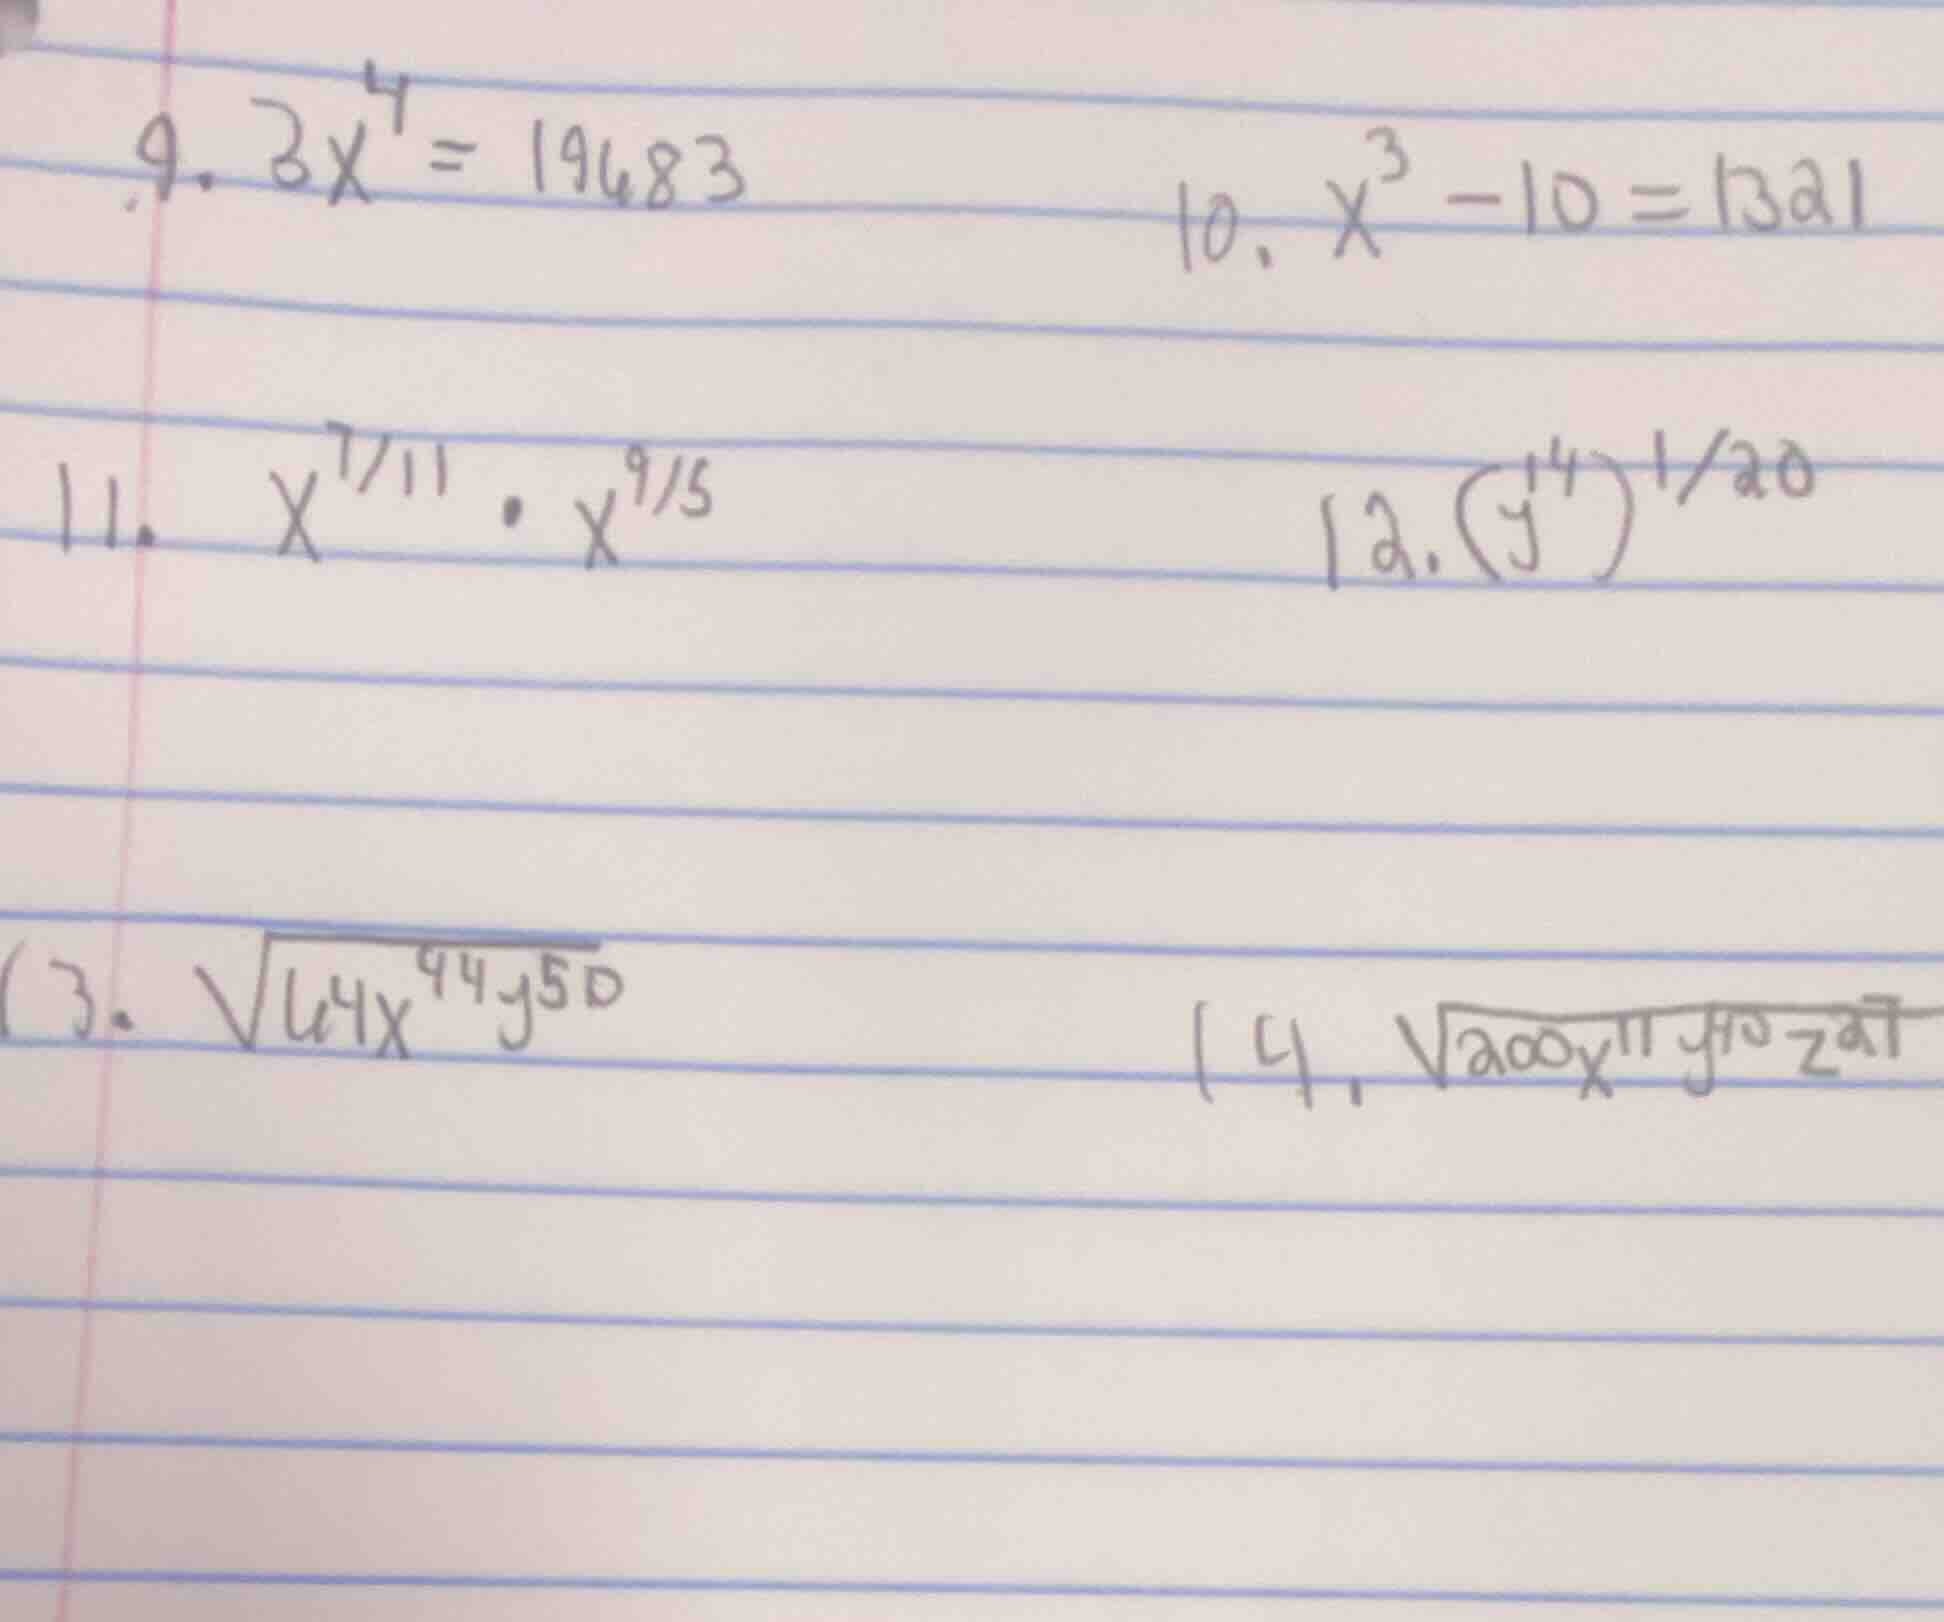 9. 3x⁴ = 19683
10. x³ - 10 = 1321
11. x^7/11 · x^9/5
12. (y¹⁴)^1/20
13. √64x⁴⁴y⁵⁰
14. √200x¹¹y⁴⁰z²⁷